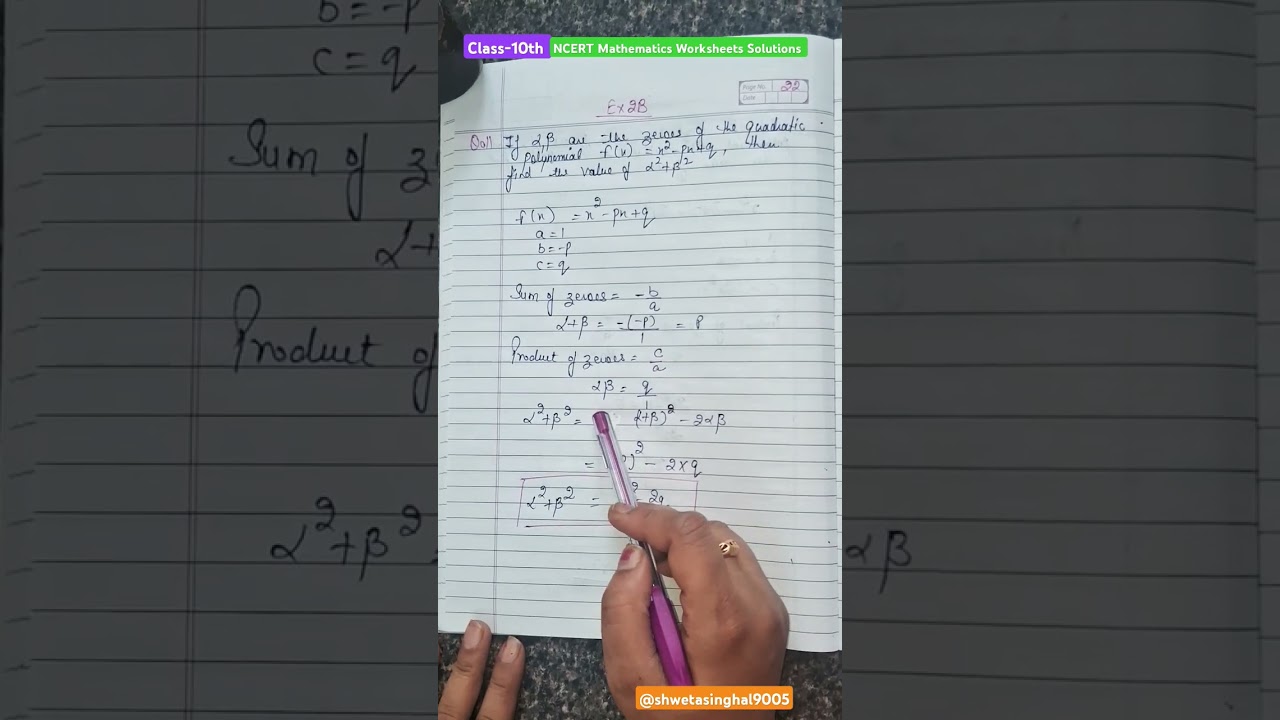 Class-10th NCERT Mathematics Worksheets Solutions
Page No. 22
Date
Ex 2B
Q01 If α β are the zeroes of the quadratic
polynomial f(x) = x² - px + q, then
find the value of α² + β²
f(x) = x² - px + q
a = 1
b = -p
c = q
Sum of zeroes = -b/a
α+β = -(-p)/1 = p
Product of zeroes = c/a
αβ = q/1
α² + β² = (α+β)² - 2αβ
= )² - 2×q
α² + β² = ² - 2q
@shwetasinghal9005
b = -p
c = q
Sum of
α+
Product of
α² + β²
αβ